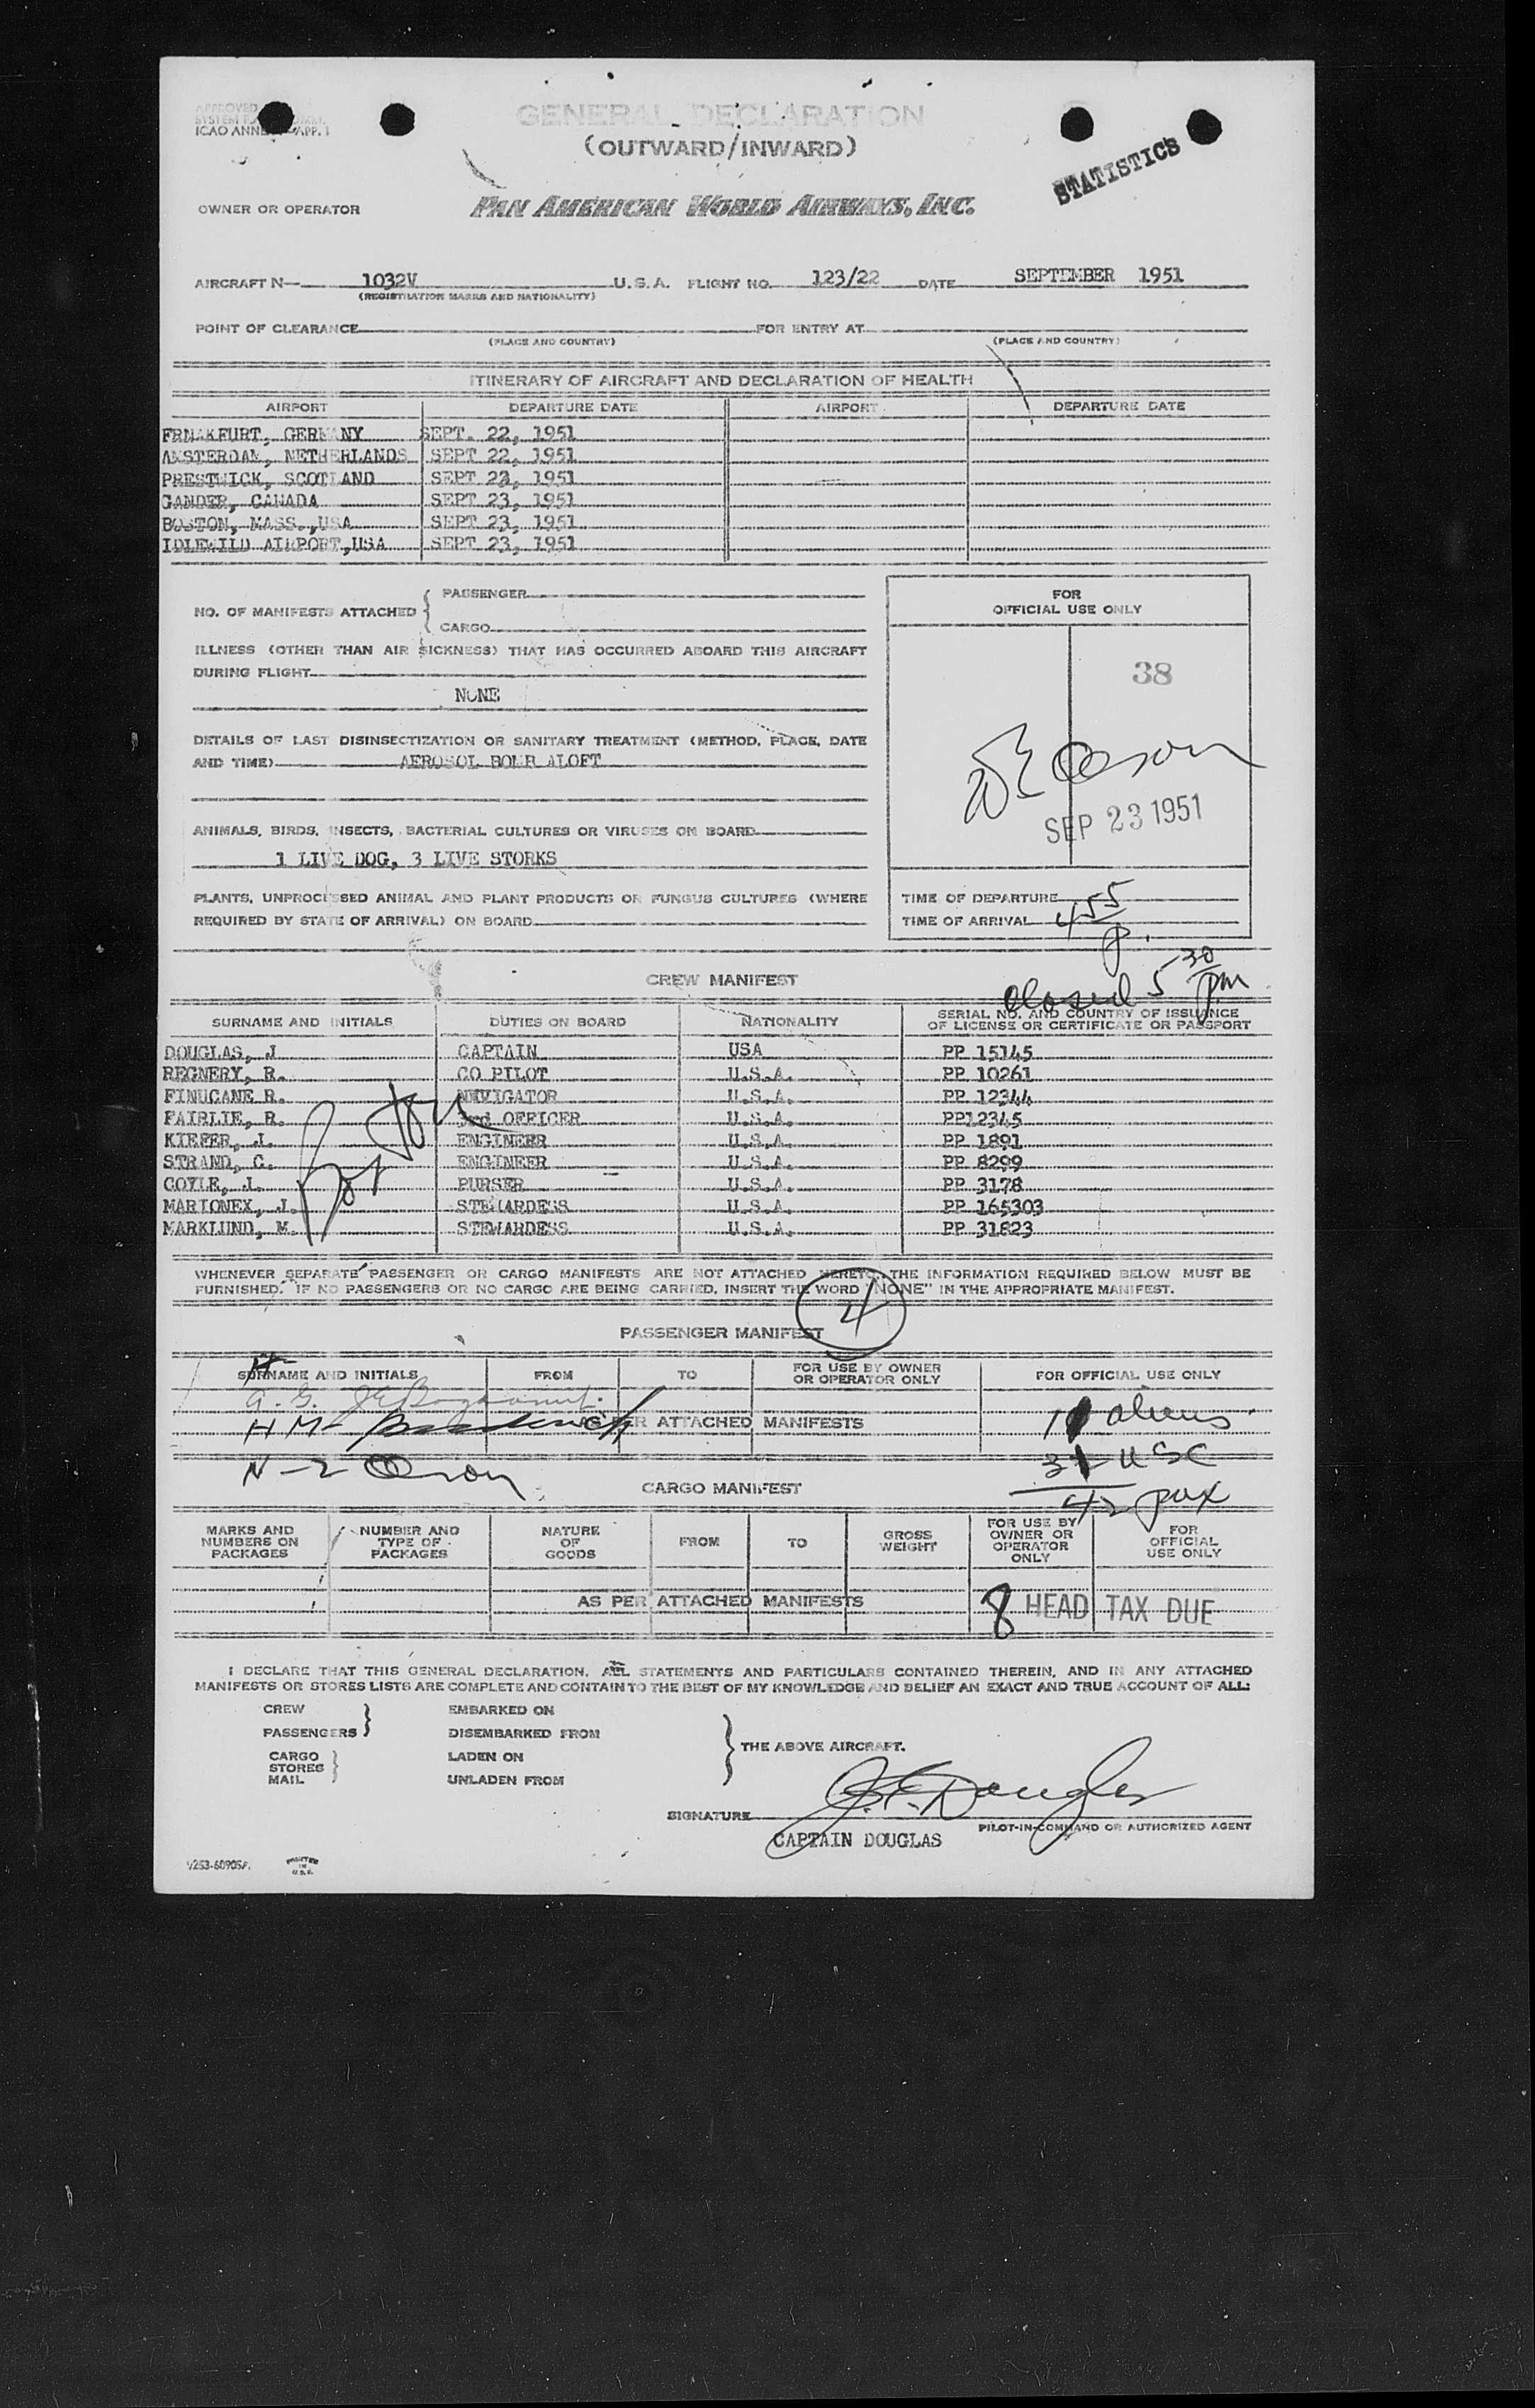 GENERAL DECLARATION
(OUTWARD/INWARD)
ICAO ANNE APP. 1
STATISTICS
OWNER OR OPERATOR PAN AMERICAN WORLD AIRWAYS, INC.
AIRCRAFT N— 1032V U.S.A. FLIGHT NO. 123/22 DATE SEPTEMBER 1951
(REGISTRATION MARKS AND NATIONALITY)
POINT OF CLEARANCE FOR ENTRY AT
(PLACE AND COUNTRY) (PLACE AND COUNTRY)
ITINERARY OF AIRCRAFT AND DECLARATION OF HEALTH
AIRPORT DEPARTURE DATE AIRPORT DEPARTURE DATE
FRNAKFURT, GERMANY SEPT. 22, 1951
AMSTERDAM, NETHERLANDS SEPT 22, 1951
PRESTWICK, SCOTLAND SEPT 22, 1951
GANDER, CANADA SEPT 23, 1951
BOSTON, MASS.,USA SEPT 23, 1951
IDLEWILD AIRPORT,USA SEPT 23, 1951
NO. OF MANIFESTS ATTACHED { PASSENGER
CARGO
ILLNESS (OTHER THAN AIR SICKNESS) THAT HAS OCCURRED ABOARD THIS AIRCRAFT
DURING FLIGHT
NONE
DETAILS OF LAST DISINSECTIZATION OR SANITARY TREATMENT (METHOD, PLACE, DATE
AND TIME) AEROSOL BOMB ALOFT
ANIMALS, BIRDS, INSECTS, BACTERIAL CULTURES OR VIRUSES ON BOARD
1 LIVE DOG, 3 LIVE STORKS
PLANTS, UNPROCESSED ANIMAL AND PLANT PRODUCTS OR FUNGUS CULTURES (WHERE
REQUIRED BY STATE OF ARRIVAL) ON BOARD
FOR
OFFICIAL USE ONLY
38
SEP 23 1951
TIME OF DEPARTURE
TIME OF ARRIVAL 455
p.
closed 5 30 pm
CREW MANIFEST
SURNAME AND INITIALS DUTIES ON BOARD NATIONALITY SERIAL NO. AND COUNTRY OF ISSUANCE
OF LICENSE OR CERTIFICATE OR PASSPORT
DOUGLAS, J CAPTAIN USA PP 15145
REGNERY, R. CO PILOT U.S.A. PP 10261
FINUCANE R. NEVIGATOR U.S.A. PP 12344
FAIRLIE, R. 3rd OFFICER U.S.A. PP12345
KIEFER, J. ENGINEER U.S.A. PP 1891
STRAND, C. ENGINEER U.S.A. PP 8299
COYLE, J. PURSER U.S.A. PP 3178
MARIONEX, J. STEWARDESS U.S.A. PP 165303
MARKLUND, M. STEWARDESS U.S.A. PP 31823
WHENEVER SEPARATE PASSENGER OR CARGO MANIFESTS ARE NOT ATTACHED HERETO, THE INFORMATION REQUIRED BELOW MUST BE
FURNISHED. IF NO PASSENGERS OR NO CARGO ARE BEING CARRIED, INSERT THE WORD "NONE" IN THE APPROPRIATE MANIFEST.
4
PASSENGER MANIFEST
SURNAME AND INITIALS FROM TO FOR USE BY OWNER
OR OPERATOR ONLY FOR OFFICIAL USE ONLY
AS PER ATTACHED MANIFESTS
aliens
USC
42 pax
CARGO MANIFEST
MARKS AND
NUMBERS ON
PACKAGES
NUMBER AND
TYPE OF
PACKAGES
NATURE
OF
GOODS
FROM
TO
GROSS
WEIGHT
FOR USE BY
OWNER OR
OPERATOR
ONLY
FOR
OFFICIAL
USE ONLY
AS PER ATTACHED MANIFESTS
8 HEAD TAX DUE
I DECLARE THAT THIS GENERAL DECLARATION, ALL STATEMENTS AND PARTICULARS CONTAINED THEREIN, AND IN ANY ATTACHED
MANIFESTS OR STORES LISTS ARE COMPLETE AND CONTAIN TO THE BEST OF MY KNOWLEDGE AND BELIEF AN EXACT AND TRUE ACCOUNT OF ALL:
CREW EMBARKED ON
PASSENGERS DISEMBARKED FROM
CARGO LADEN ON
STORES
MAIL UNLADEN FROM
THE ABOVE AIRCRAFT.
SIGNATURE J.F. Douglas
PILOT-IN-COMMAND OR AUTHORIZED AGENT
CAPTAIN DOUGLAS
PRINTED
IN
U.S.A.